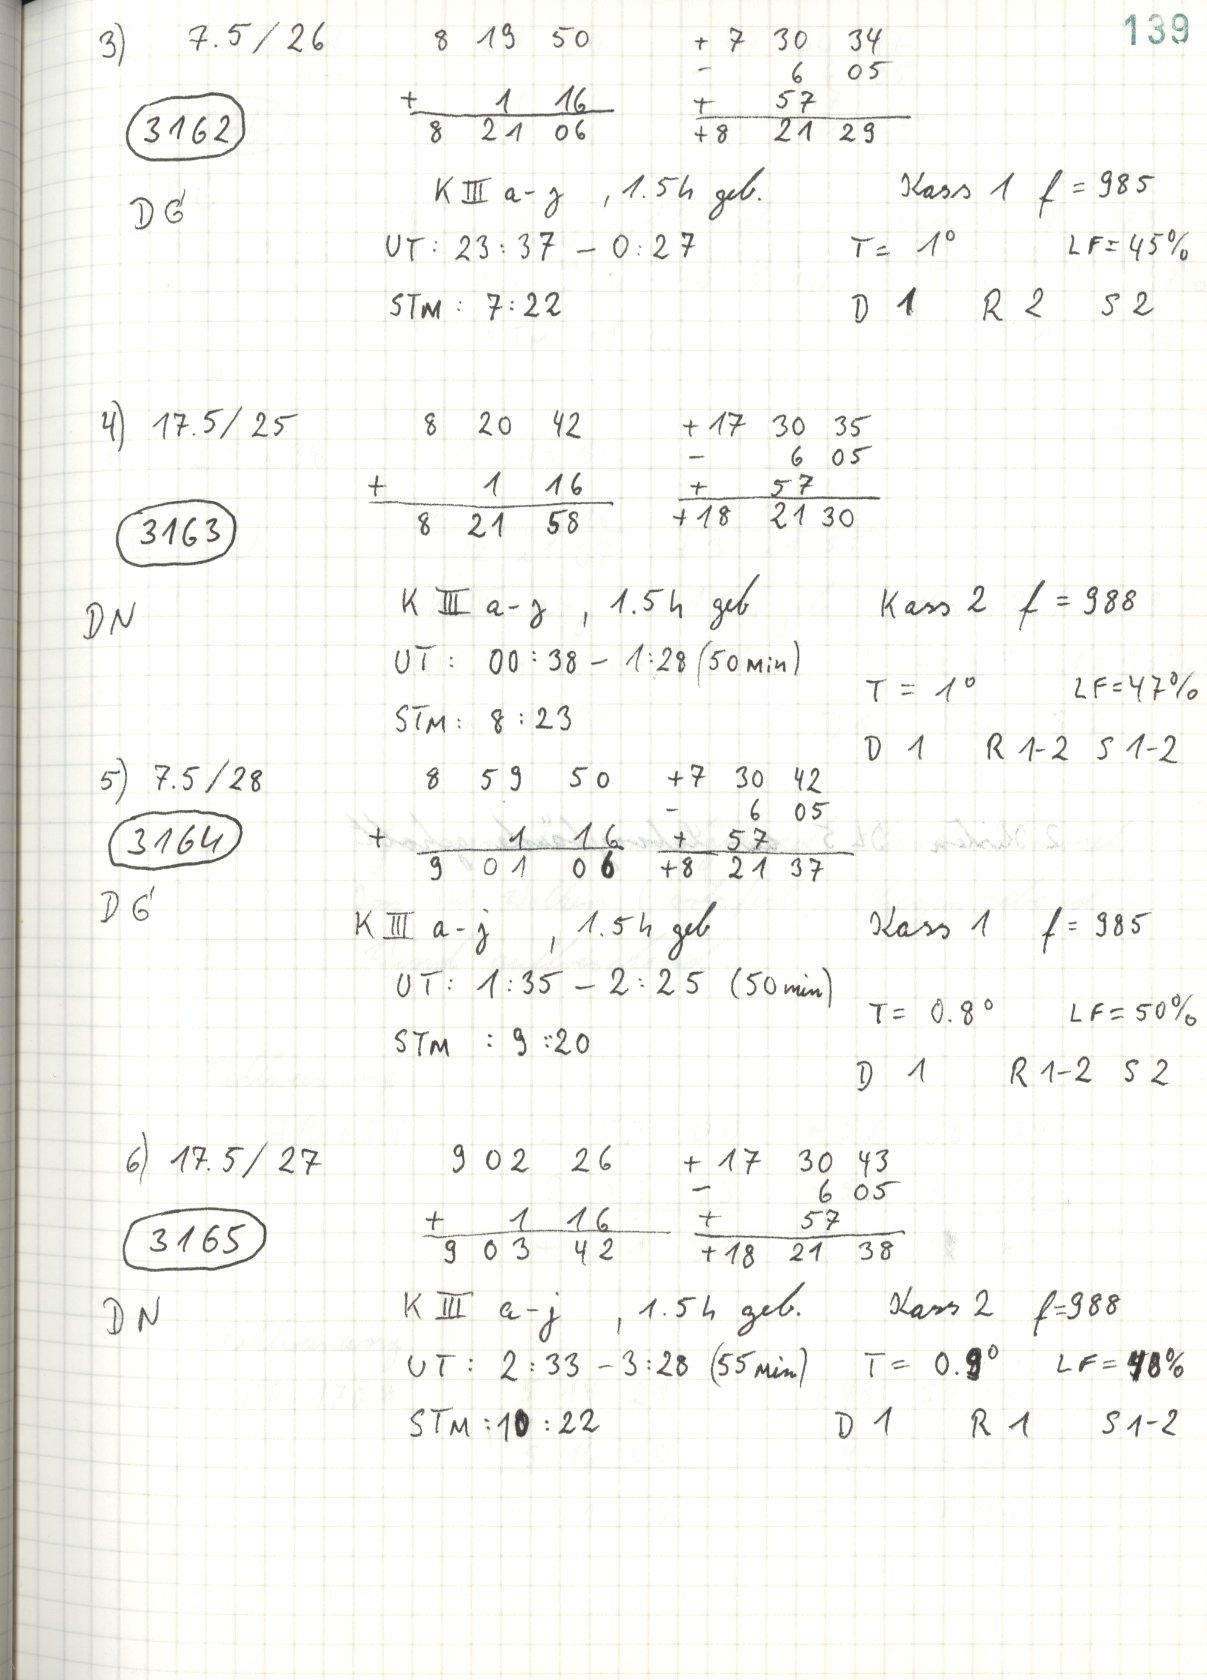 139
3) 7.5/26 8 19 50 + 7 30 34
- 6 05
+ 1 16 + 57
3162 8 21 06 +8 21 29
DG K III a-j , 1.5h geb. Kass 1 f = 985
UT: 23:37 - 0:27 T= 1° LF=45%
STM: 7:22 D 1 R 2 S 2
4) 17.5/25 8 20 42 + 17 30 35
- 6 05
+ 1 16 + 57
3163 8 21 58 +18 21 30
DN K III a-j , 1.5h geb Kass 2 f = 988
UT: 00:38 - 1:28 (50min)
T = 1° LF=47%
STM: 8:23
D 1 R 1-2 S 1-2
5) 7.5/28 8 59 50 +7 30 42
- 6 05
3164 + 1 16 + 57
9 01 06 +8 21 37
DG K III a-j , 1.5h geb Kass 1 f= 985
UT: 1:35 - 2:25 (50min)
T= 0.8° LF=50%
STM : 9:20
D 1 R 1-2 S 2
6) 17.5/27 9 02 26 + 17 30 43
- 6 05
+ 1 16 + 57
3165 9 03 42 +18 21 38
DN K III a-j , 1.5h geb. Kass 2 f=988
UT: 2:33 - 3:28 (55min) T= 0.9° LF=48%
STM:10:22 D 1 R 1 S 1-2